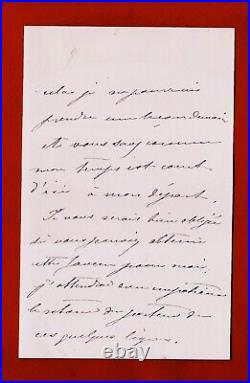 cela je ne pourrais
prendre une leçon demain
et vous savez comme
mon temps est court
d'ici à mon départ.
Je vous serais bien obligée
si vous pouviez obtenir
cette faveur pour moi,
j'attendrai avec impatience
le retour du porteur de
ces quelques lignes.